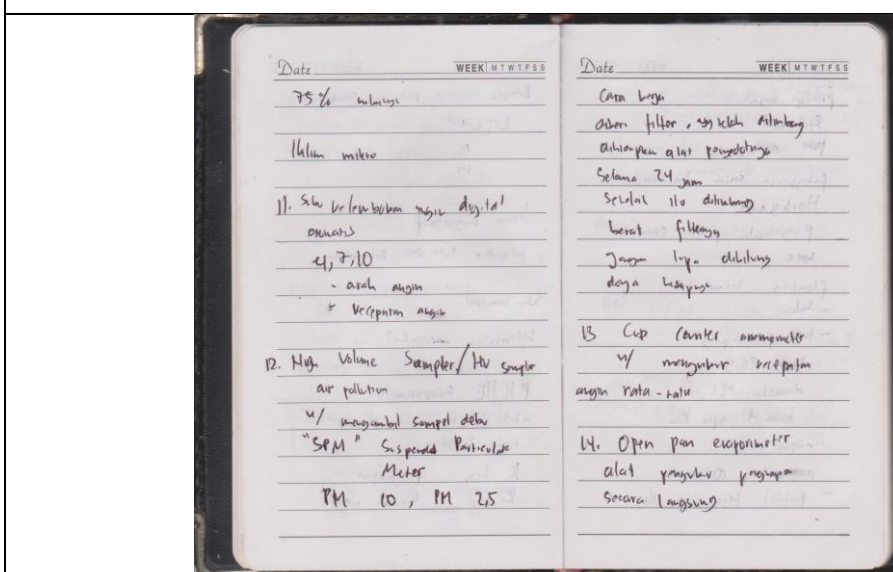 Date WEEK M T W T F S S
75%
Iklim mikro
11. Suhu kelembaban angin digital
otomatis
4, 7, 10
- arah angin
- kecepatan angin
12. High Volume Sampler / HV Sampler
air pollution
u/ mengambil sampel debu
"SPM" Suspended Particulate
Meter
PM 10, PM 2,5
Date WEEK M T W T F S S
Cara kerja
diberi filter, yg telah ditimbang
disiapkan alat penyedotnya
Selama 24 jam
Setelah itu ditimbang
berat filternya
Jangan lupa dihitung
daya hisapnya
13 Cup Counter anemometer
u/ mengukur kecepatan
angin rata-rata
14. Open pan evaporimeter
alat pengukur penguapan
secara langsung